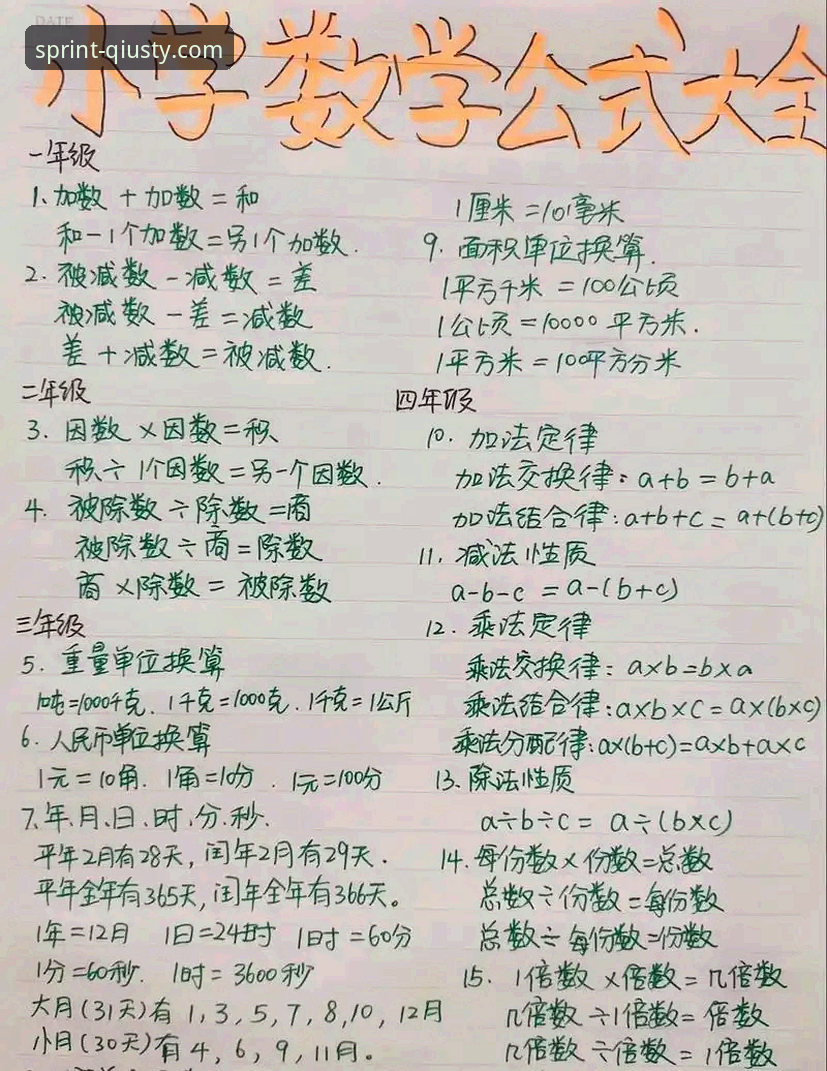 DATE
sprint-qiusty.com
小学数学公式大全
一年级
1. 加数 + 加数 = 和
和 - 1个加数 = 另1个加数.
2. 被减数 - 减数 = 差
被减数 - 差 = 减数
差 + 减数 = 被减数.
二年级
3. 因数 × 因数 = 积
积 ÷ 1个因数 = 另一个因数.
4. 被除数 ÷ 除数 = 商
被除数 ÷ 商 = 除数
商 × 除数 = 被除数
三年级
5. 重量单位换算
1吨=1000千克. 1千克=1000克. 1千克=1公斤
6. 人民币单位换算
1元=10角. 1角=10分. 1元=100分
7. 年.月.日.时.分.秒.
平年2月有28天, 闰年2月有29天.
平年全年有365天, 闰年全年有366天。
1年=12月 1日=24时 1时=60分
1分=60秒. 1时=3600秒
大月(31天)有 1, 3, 5, 7, 8, 10, 12月
小月(30天)有 4, 6, 9, 11月。
1厘米=10毫米
9. 面积单位换算.
1平方千米 = 100公顷
1公顷=10000平方米.
1平方米=100平方分米
四年级
10. 加法定律
加法交换律: a+b = b+a
加法结合律: a+b+c = a+(b+c)
11. 减法性质
a-b-c = a-(b+c)
12. 乘法定律
乘法交换律: a×b=b×a
乘法结合律: a×b×c = a×(b×c)
乘法分配律: a×(b+c)=a×b+a×c
13. 除法性质
a÷b÷c = a÷(b×c)
14. 每份数×份数=总数
总数÷份数=每份数
总数÷每份数=份数
15. 1倍数×倍数=几倍数
几倍数÷1倍数=倍数
几倍数÷倍数=1倍数